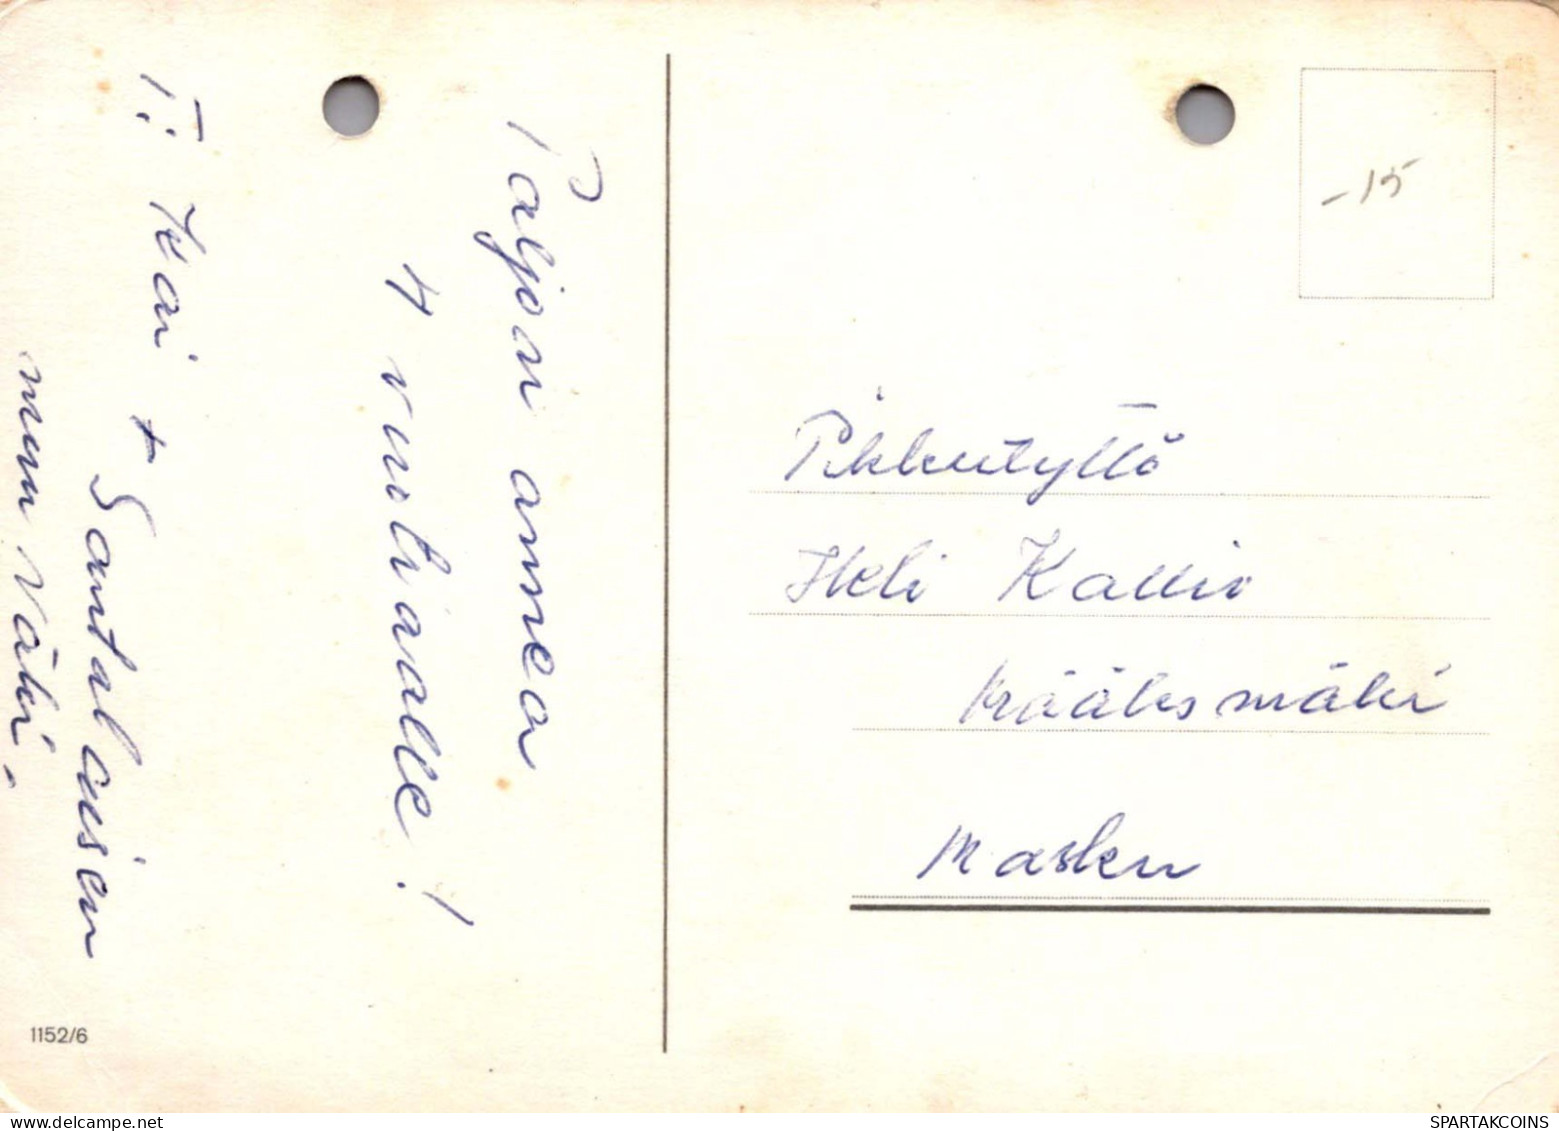 Paljon onnea
4 vuotiaalle!
T: Kai + Santalaisen
muu väki.
1152/6
-15
Pikkutyttö
Heli Kallio
Kääksmäki
Masku
SPARTAKCOINS